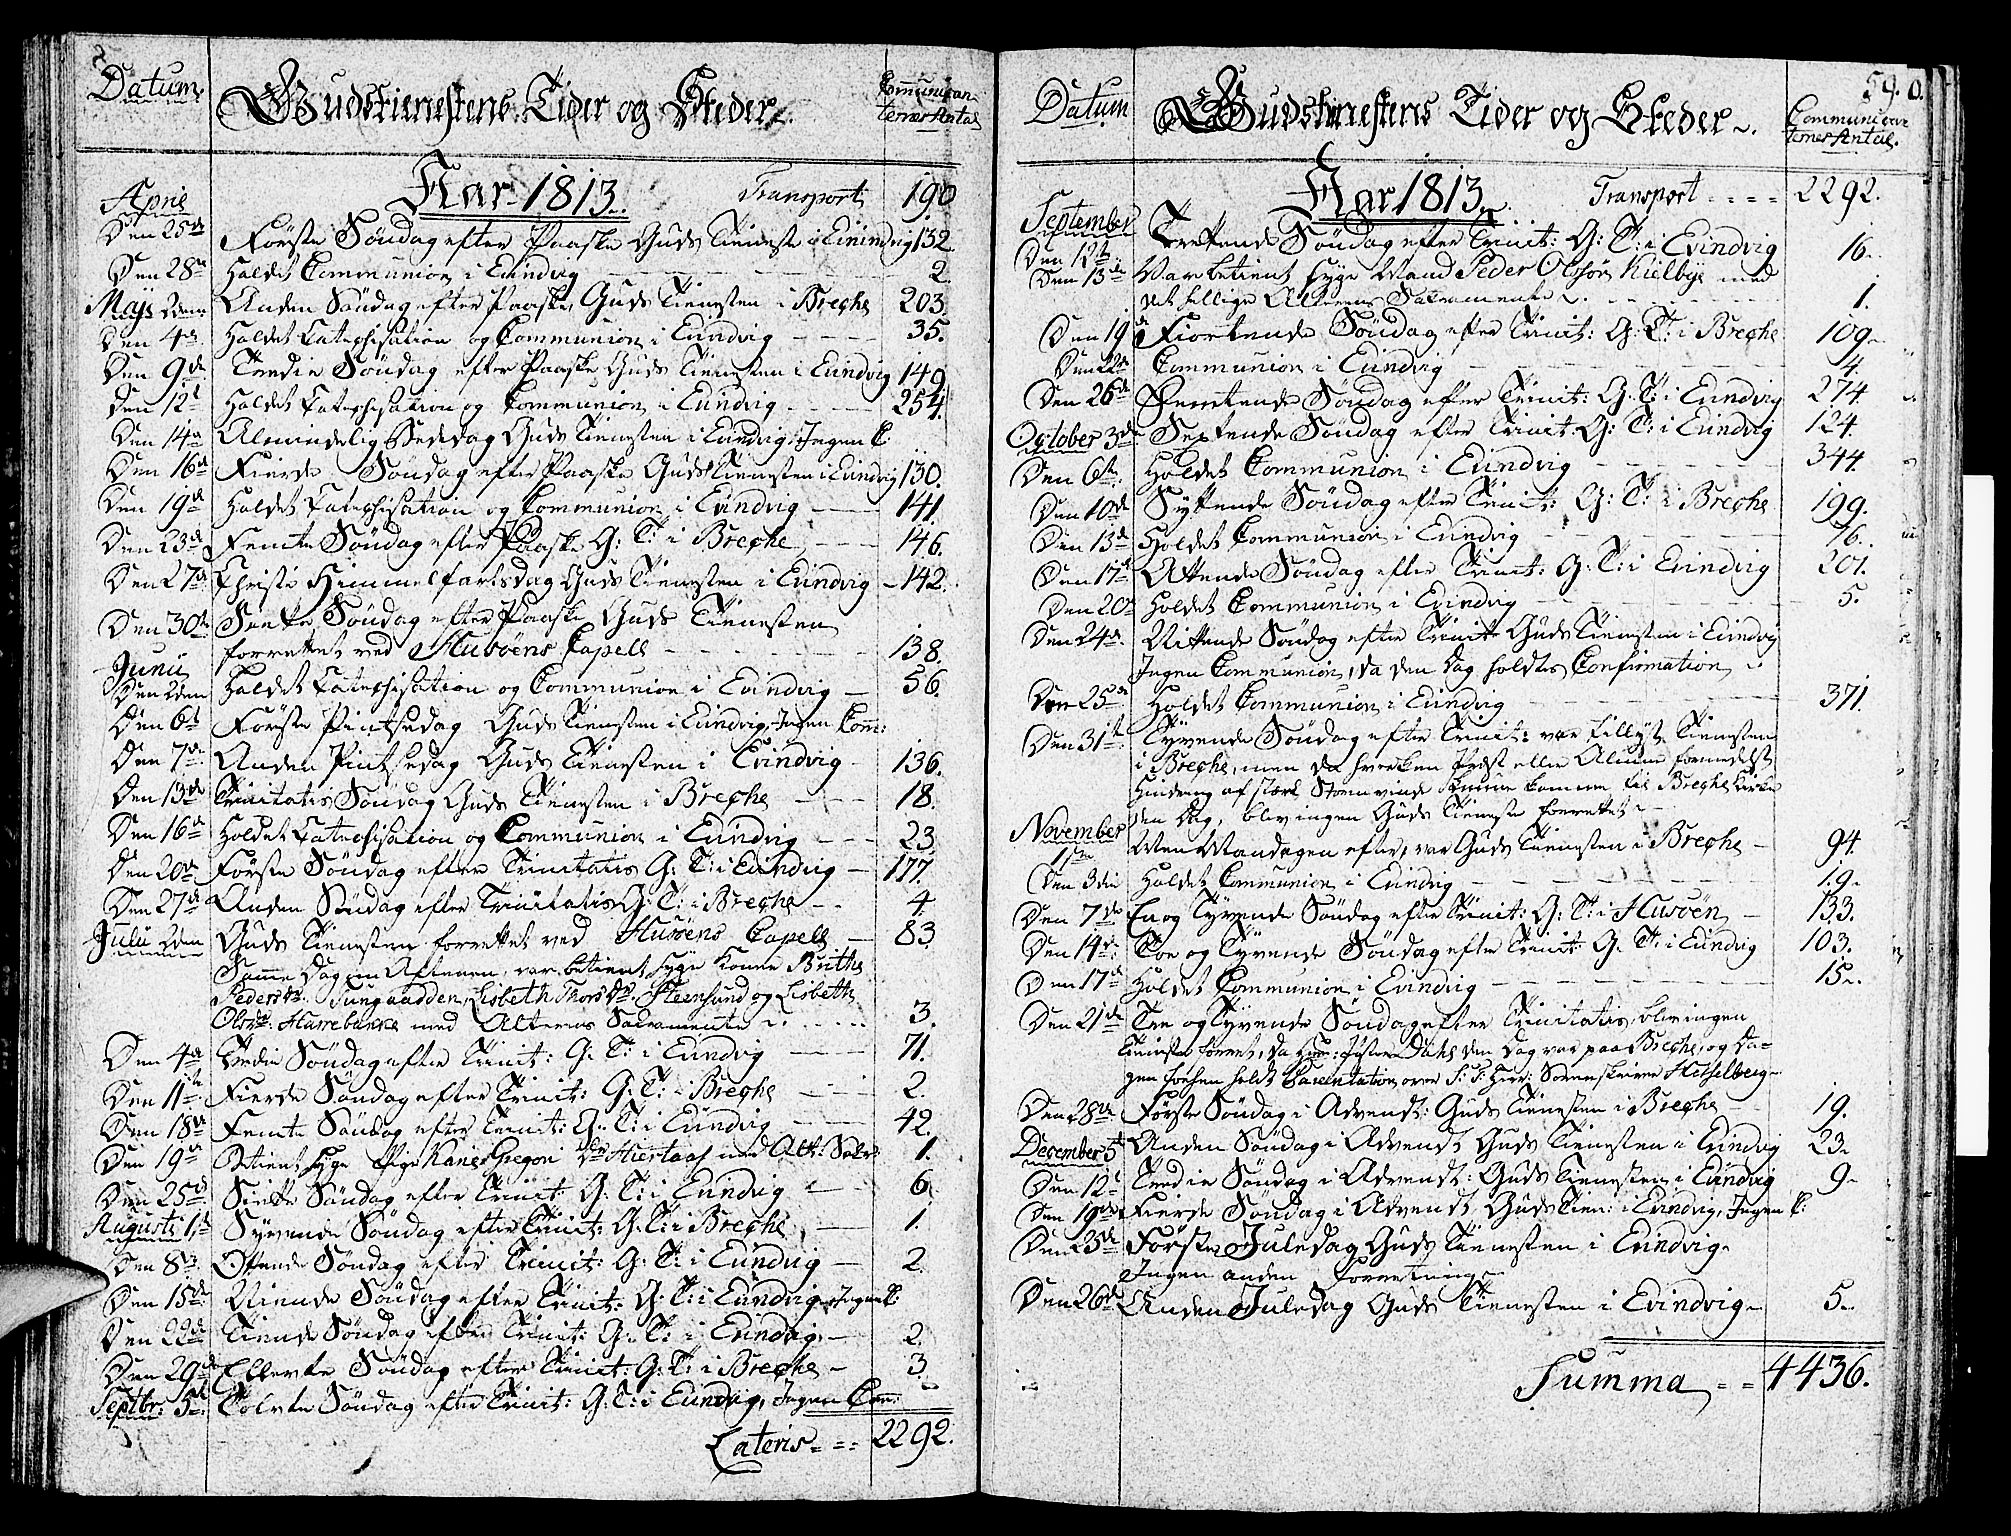 Datum. Gudstienestens Tider og Steder. Communican
ternes Antal
Aar 1813. Transport 190
April
Den 25de Første Søndag efter Paaske Guds Tieneste i Evindvig 132
Den 28de Holdet Communion i Evindvig 2.
Maji 2den Anden Søndag efter Paaske, Guds Tienesten i Breche 203.
Den 4de Holdet Catechisation og Communion i Evindvig 35.
Den 9de Tredie Søndag efter Paaske Guds Tienesten i Evindvig 149
Den 12te Holdet Catechisation og Communion i Evindvig 254.
Den 14de Almindelig Bededag Guds Tienesten i Evindvig, Ingen C:
Den 16de Fierde Søndag efter Paaske Guds Tienesten i Evindvig 130.
Den 19de Holdet Catechisation og Communion i Evindvig 141.
Den 23de Femte Søndag efter Paaske G: T: i Breche 146.
Den 27de Christi Himmelfartsdag Guds Tienesten i Evindvig 142.
Den 30te Siette Søndag efter Paaske Guds Tienesten
forrettet ved Husöens Capell 138.
Junii
Den 2den Holdet Catechisation og Communion i Evindvig 56.
Den 6te Første Pintsedag Guds Tienesten i Evindvig, Ingen Com:
Den 7de Anden Pintsedag Guds Tienesten i Evindvig 136.
Den 13de Trinitatis Søndag Guds Tienesten i Breche 18.
Den 16de Holdet Catechisation og Communion i Evindvig 23.
Den 20de Første Søndag efter Trinitatis G: T: i Evindvig 177.
Den 27de Anden Søndag efter Trinitatis G: T: i Breche 4.
Julii 2den Guds Tienesten forrettet ved Husöens Capell 83.
Samme Dag om Aftenen, var betient syge Konne Brithe
Pedersdr: Tungaadden, Lisbeth Thorsdr: Steensund og Lisbeth
Olsdr: Harrebakke med Alterens Sacramente 3.
Den 4de Tredie Søndag efter Trinit: G: T: i Evindvig 71.
Den 11te Fierde Søndag efter Trinit: G: T: i Breche 2.
Den 18de Femte Søndag efter Trinit: G: T: i Evindvig 42.
Den 19de Betient syge Pige Gregori dr Hiertaas med Alt: Sacr: 1.
Den 25de Siette Søndag efter Trinit: G: T: i Evindvig 6.
Augusti 1ste Syvende Søndag efter Trinit: G: T: i Breche 1.
Den 8de Ottende Søndag efter Trinit: G: T: i Evindvig 2.
Den 15de Niende Søndag efter Trinit: G: T: i Evindvig Ingen C:
Den 22de Tiende Søndag efter Trinit: G: T: i Evindvig 2.
Den 29de Ellevte Søndag efter Trinit: G: T: i Breche 3.
Septbr: 5te Tolvte Søndag efter Trinit: G: T: i Evindvig, Ingen Com:
Lateris 2292.
59.
Datum Gudstienestens Tider og Steder. Communican
ternes Antal.
Aar 1813. Transport 2292.
September
Den 12te Trettende Søndag efter Trinit: G: T: i Evindvig 16.
Den 13de Var betient syge Mand Peder Olssön Kielbye med
det hellige Alterens Sacramente 1.
Den 19de Fiortende Søndag efter Trinit: G: T: i Breche 109.
Den 22de Communion i Evindvig 4.
Den 26de Femtende Søndag efter Trinit: G: T: i Evindvig 274.
October 3de Sextende Søndag efter Trinit: G: T: i Evindvig 124.
Den 6te Holdet Communion i Evindvig 344.
Den 10de Syttende Søndag efter Trinit: G: T: i Breche 199.
Den 13de Holdet Communion i Evindvig 76.
Den 17de Attende Søndag efter Trinit: G: T: i Evindvig 201.
Den 20de Holdet Communion i Evindvig 5.
Den 24de Nittende Søndag efter Trinit: Guds Tienesten i Evindvig
Ingen Communion, da den Dag holdtes Confirmation
Den 25de Holdet Communion i Evindvig 371.
Den 31te Tyvende Søndag efter Trinit: var tillyst Tienesten
i Breche, men da hverken Præst eller Almue formedelst
Hindring af stærk Storm vinde kunne komme til Breche Kirke
den Dag, blev ingen Guds Tieneste forrettet
November
1ste Men Mandagen efter, var Guds Tienesten i Breche 94.
Den 3die Holdet Communion i Evindvig 19.
Den 7de En og Tyvende Søndag efter Trinit: G: T: i Husöen 133.
Den 14de Toe og Tyvende Søndag efter Trinit: G: T: i Evindvig 103.
Den 17de Holdet Communion i Evindvig 15.
Den 21de Tre og Tyvende Søndag efter Trinitatis, blev ingen
Tieneste forret, da Dahl den Dag var paa Breche, og Da-
gen forhen holdt Parentation over S: T: Herr: Sorenskriver Hesselberg
Den 28de Første Søndag i Advendt: Guds Tienesten i Breche 19.
December 5te Anden Søndag i Advendt Guds Tienesten i Evindvig 23.
Den 12te Tredie Søndag i Advendt: Guds Tienesten i Evindvig 9.
Den 19de Fierde Søndag i Advendt, Guds Tien: i Evindvig, Ingen C:
Den 25de Første Juledag Guds Tienesten i Evindvig.
Ingen anden Forretning.
Den 26de Anden Juledag Guds Tienesten i Evindvig 5.
Summa 4436.